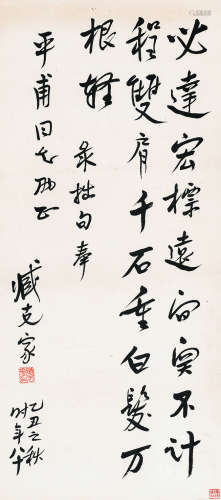 必達宏標遠不計
程雙肩千石重白髮万
根輕 录拙句奉
平甫同志正
臧克家
乙丑之秋
时年八十